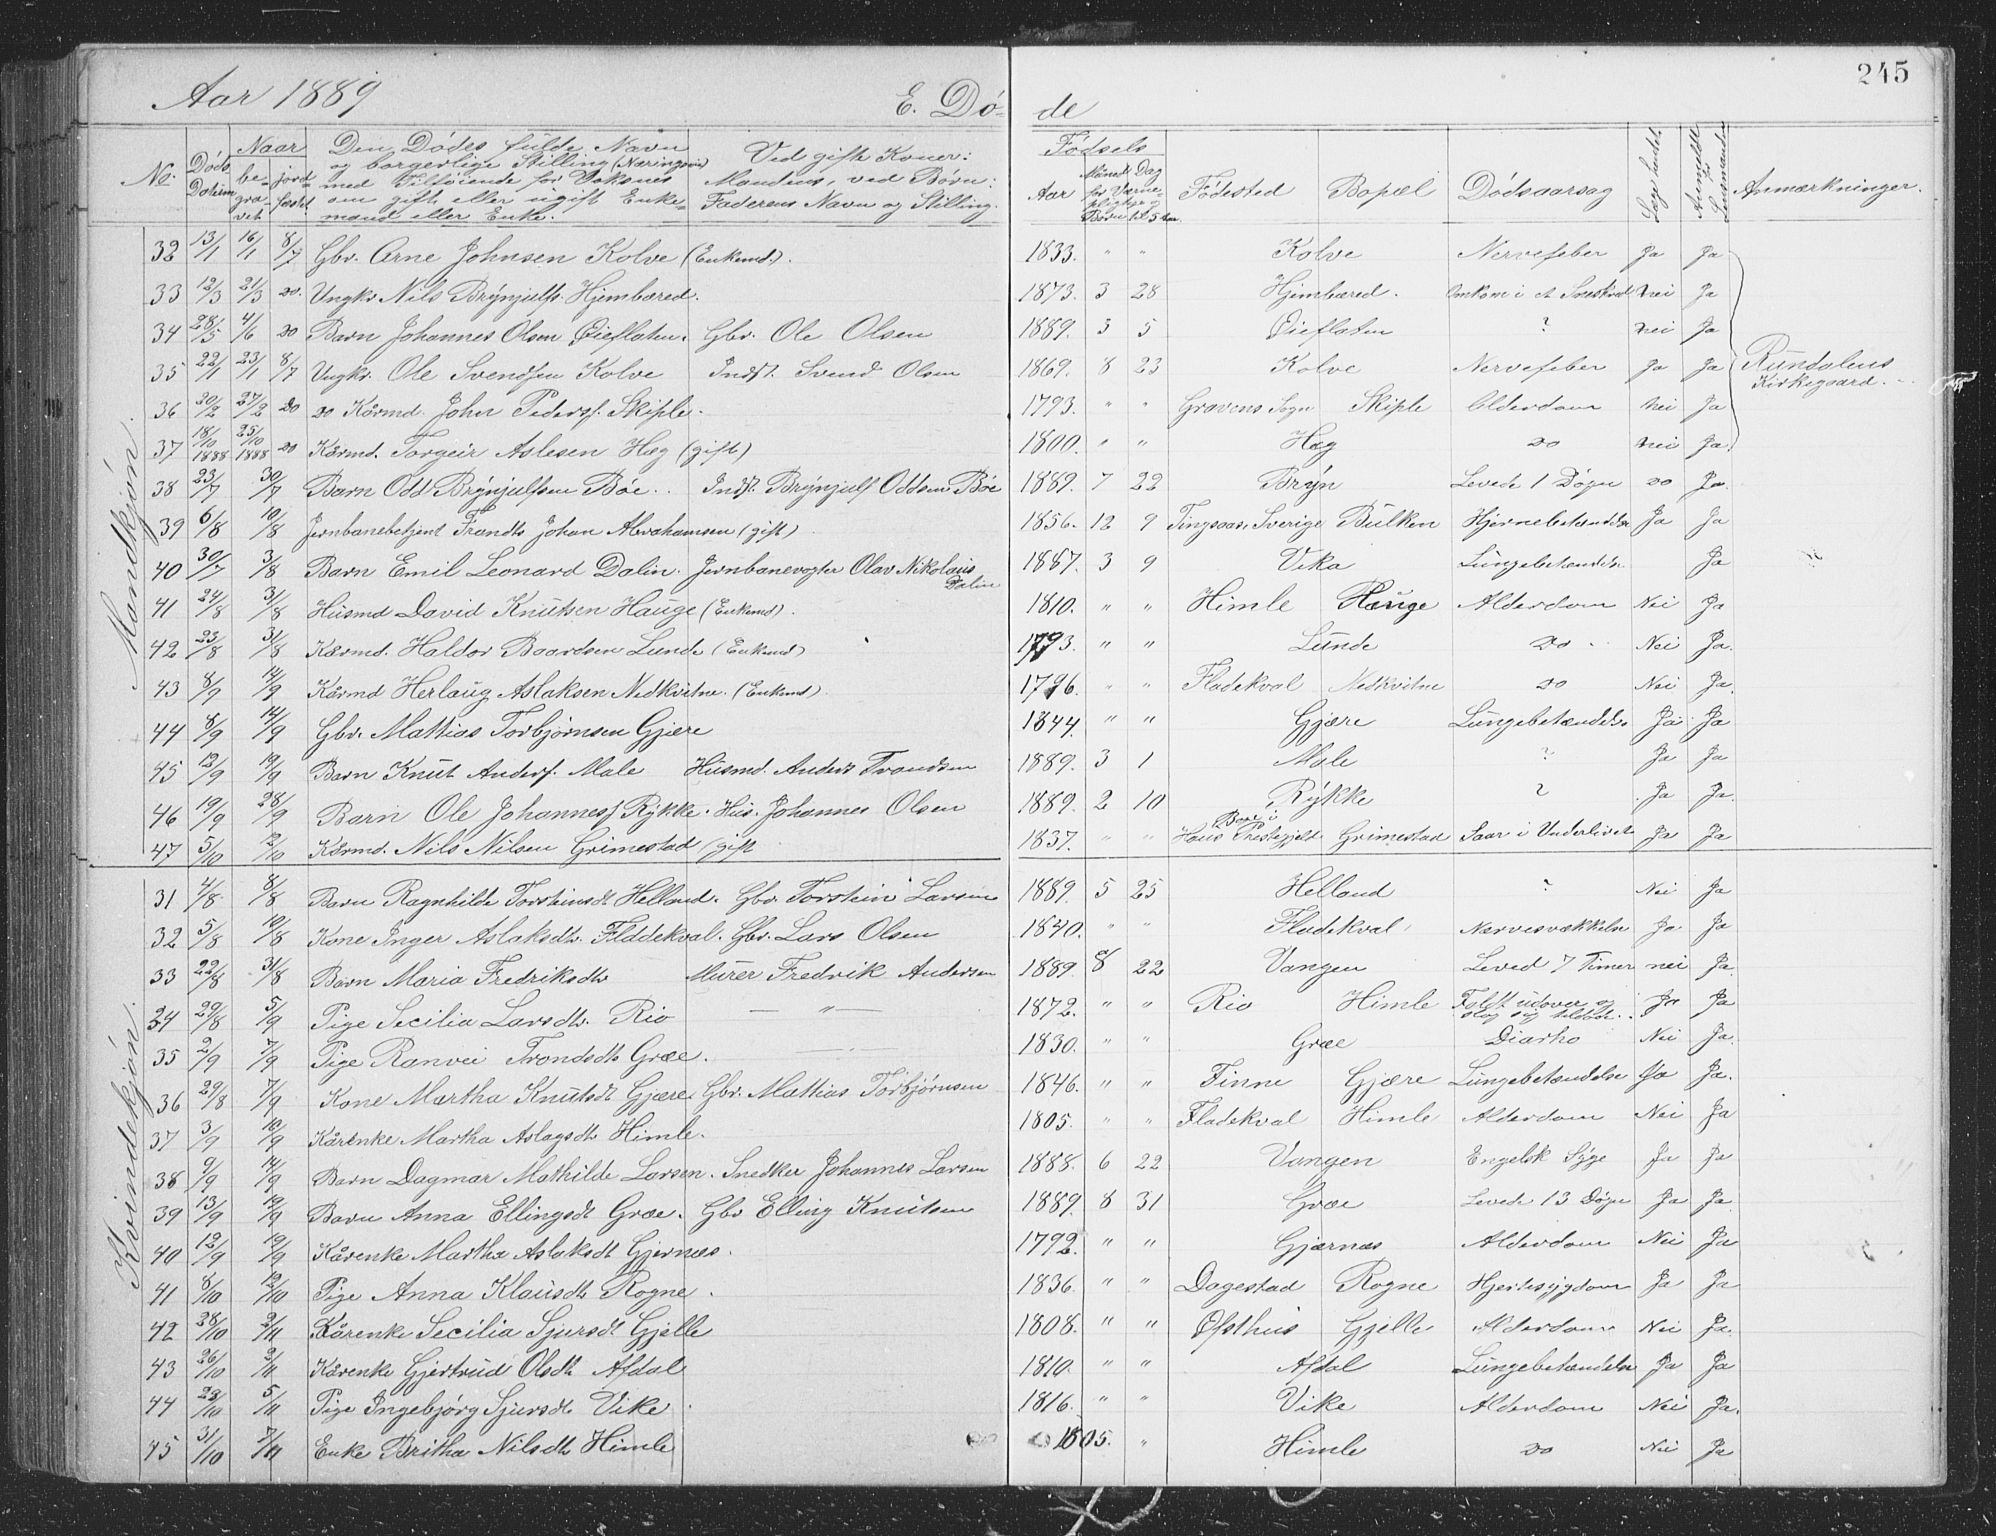 Aar 1889 E. Dø- de 245
No. Døds Datum Naar be- gra- vet jord- fæstet Den Dødes fulde Navn og borgerlige Stilling (Næringsvei) med Tilføiende for Voksnes om gift eller ugift Enke- mand eller Enke. Ved gifte Koner: Mandens, ved Børn: Faderens Navn og Stilling. Fødsels Aar Maaned Dag for Værne- pligtige og Børn til 5 Aar Fødested Bopæl Dødsaarsag Læge hentet Anmeldt for Lensmanden Anmærkninger.
Mandkjøn.
32 13/1 16/1 8/7 Gbr. Arne Johnsen Kolve (Enkemd.). 1833. " " Kolve Nervefeber Ja Ja
33 12/3 21/3 do. Ungkr. Nils Brynjulfs. Hjembæred. 1873. 3 28 Hjembæred. Omkom i et Sneskred Nei Ja
34 28/5 4/6 do Barn Johannes Olsen Øieflaten. Gbr. Ole Olsen 1889. 3 5 Øieflaten ? nei Ja
35 22/1 23/1 8/7 Ungkr. Ole Svendsen Kolve Indst. Svend Olsen 1869. 8 23 Kolve Nervefeber Ja Ja Rundalens Kirkegaard.
36 20/2 27/2 do do Kårmd. John Peders. Skiple. 1793. " " Gravens Sogn Skiple Alderdom Nei Ja
37 18/10 1888 25/10 1888 do Kårmd. Torgeir Aslesen Hæg (gift) 1800. " " Hæg do Nei Ja
38 23/7 30/7 Barn Odd Brynjulfsen Bøe. Indst. Brynjulf Oddsen Bøe 1889. 7 22 Bryn Levede 1 Døgn do Ja
39 6/8 10/8 Jernbanebetjent Frandts Johan Abrahamsen (gift) 1856. 12 9 Tingsaas, Sverige Bulken Hjernebetændelse Ja Ja
40 30/7 3/8 Barn Emil Leonard Dalin. Jernbanevogter Olav Nikolaus Dalin 1887. 3 9 Vika Lungebetændelse Ja
41 24/8 31/8 Husmd David Knutsen Hauge (Enkemd). 1810. " " Himle Hauge Alderdom Nei Ja
42 23/8 31/8 Kårmd. Haldor Baardsen Lunde (Enkemd) 1793. " " Lunde do Nei Ja.
43 8/9 14/9 Kårmd Herlaug Aslaksen Nedkvitne. (Enkemd) 1796. " " Fladekval Nedkvitne do Nei Ja.
44 8/9 14/9 Gbr. Mattias Torbjørnsen Gjære 1844. " " Gjære Lungebetændelse Ja Ja
45 12/9 19/9 Barn Knut Anders. Male Husmd. Anders Trondsen 1889. 3 1 Male ? Ja Ja
46 19/9 28/9 Barn Ole Johanness. Rykke. Hus. Johannes Olsen 1889. 2 10 Rykke ? Ja Ja.
47 5/10 2/10 Kårmd. Nils Nilsen Grimestad (gift 1837. " " Hous Prestegjeld Grimestad Saar i Underlivet Ja Ja
Kvindekjøn.
31 4/8 8/8 Barn Ragnhilde Torsteinsdt Helland. Gbr Torstein Larsen 1889. 5 25 Helland ? Nei Ja
32 5/8 10/8 Kone Inger Aslaksdtr. Fladekval. Gbr. Lars Olsen 1840. " " Fladekval Nervesvækkelse Ja Ja
33 22/8 31/8 Barn Maria Fredriksdtr Murer Fredrik Andersen 1889. 8 22 Vangen Leved 7 Timer nei Ja.
34 29/8 5/9 Pige Secilia Larsdtr. Rio — " — 1872. " " Rio Himle Faldt udover og slog sig tildøde. Ja Ja
35 2/9 7/9 Pige Ranvei Trondsdtr Græe. 1830. " " Græe Diarho Nei Ja.
36 29/8 7/9 Kone Martha Knutsdt Gjære. Gbr. Mattias Torbjørnsen 1846. " " Finne Gjære Lungebetændelse Ja Ja.
37 3/9 10/9 Kårenke Martha Aslagsdtr Himle. 1805. " " Fladekval Himle Alderdom Nei Ja
38 9/9 14/9 Barn Dagmar Mathilde Larsen. Snedker Johannes Larsen 1888. 6 22 Vangen Engelsk Syge Ja Ja
39 13/9 19/9 Barn Anna Ellingsdt Græe. Gbr Elling Knutsen 1889. 8 31 Græe Levede 13 Døgn Ja Ja.
40 12/9 19/9 Kårenke Martha Aslaksdt Gjernæs. 1792. " " Gjærnæs Alderdom Nei Ja
41 8/10 12/10 Pige Anna Klausdtr Rogne. 1836. " " Dagestad Rogne Hjertesygdom Ja Ja
42 28/10 2/11 Kårenke Secilia Sjursdt Gjelle 1808. " " Ofsthus Gjelle Alderdom Nei Ja.
43 26/10 2/11 Kårenke Gjertrud Olsdtr Afdal 1810. " " Afdal Lungebetændelse Ja Ja
44 29/10 5/11 Pige Ingebjørg Sjursdtr Vike 1816. " " Vike Alderdom Nei Ja.
45 31/10 7/11 Enke Britha Nilsdtr Himle 1805. " Himle do Nei Ja